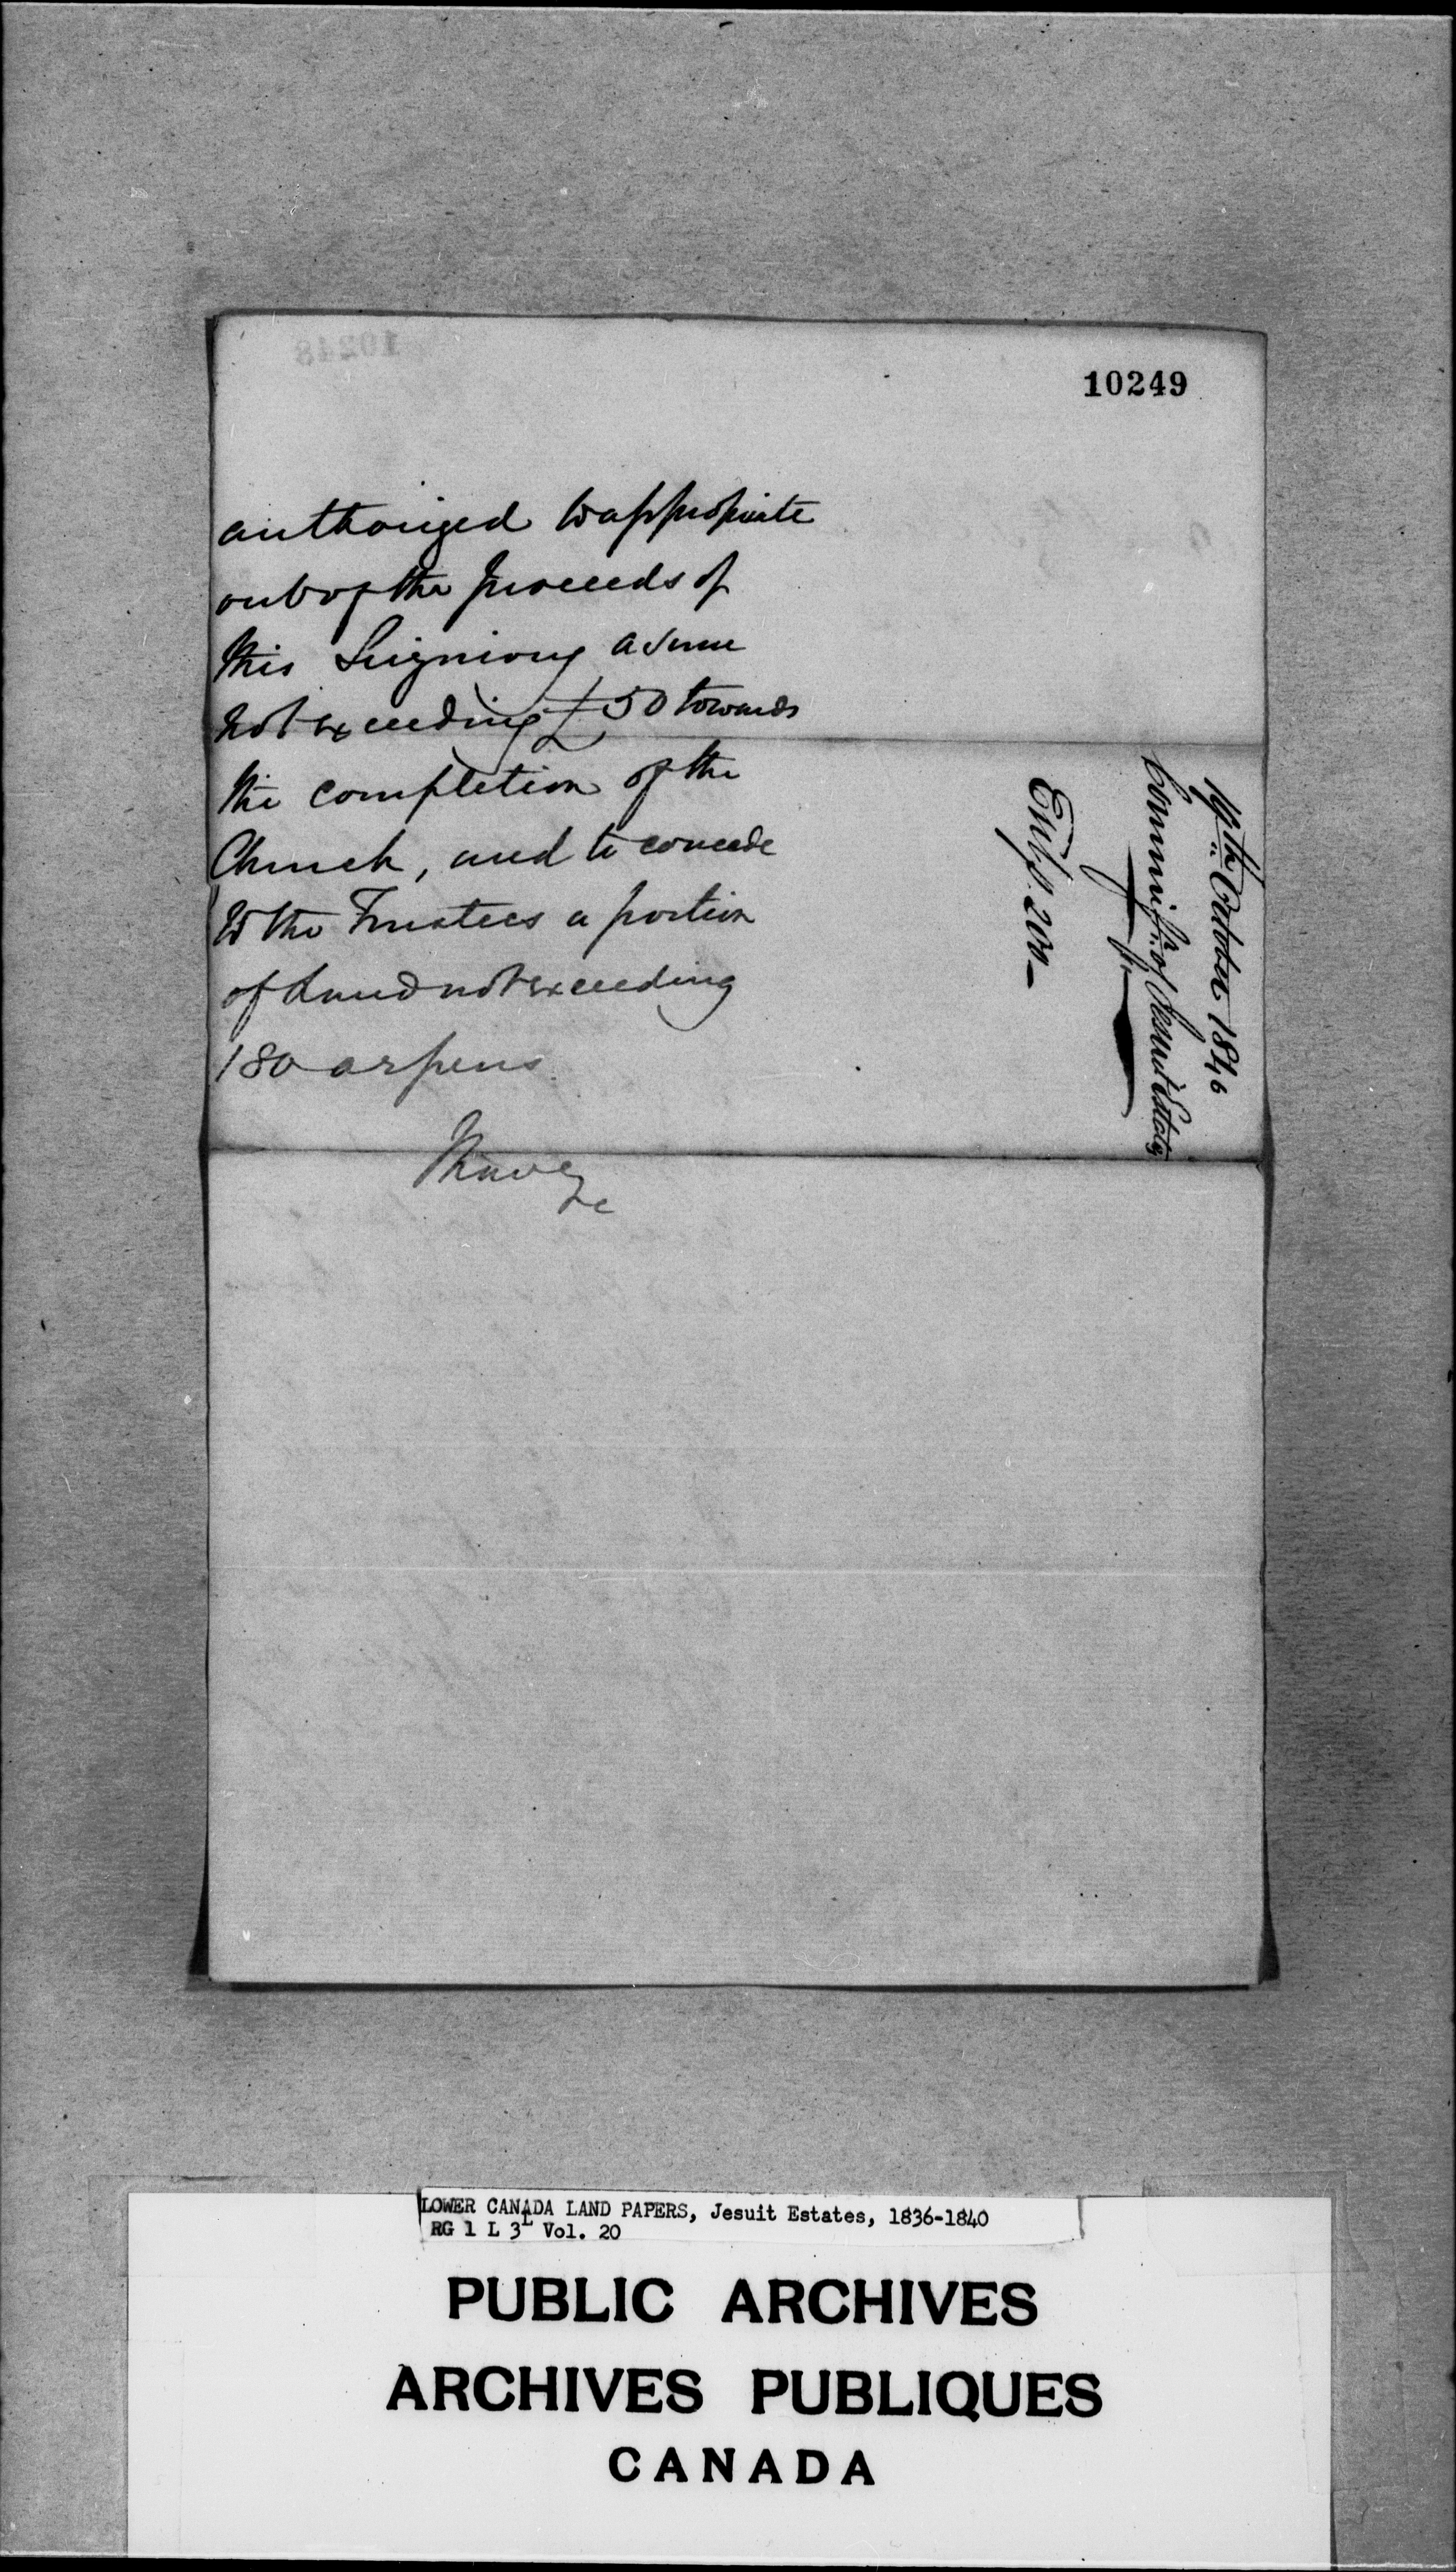 10249
authorized to appropriate
out of the proceeds of
this Seigniory a sum
not exceeding £50 towards
the completion of the
Church, and to concede
to the Trustees a portion
of Land not exceeding
180 arpens.
I have
&c
October 1840
Commissr. of Jesuit Estates
Ent. p. 200
LOWER CANADA LAND PAPERS, Jesuit Estates, 1836-1840
RG 1 L 3L Vol. 20
PUBLIC ARCHIVES
ARCHIVES PUBLIQUES
CANADA